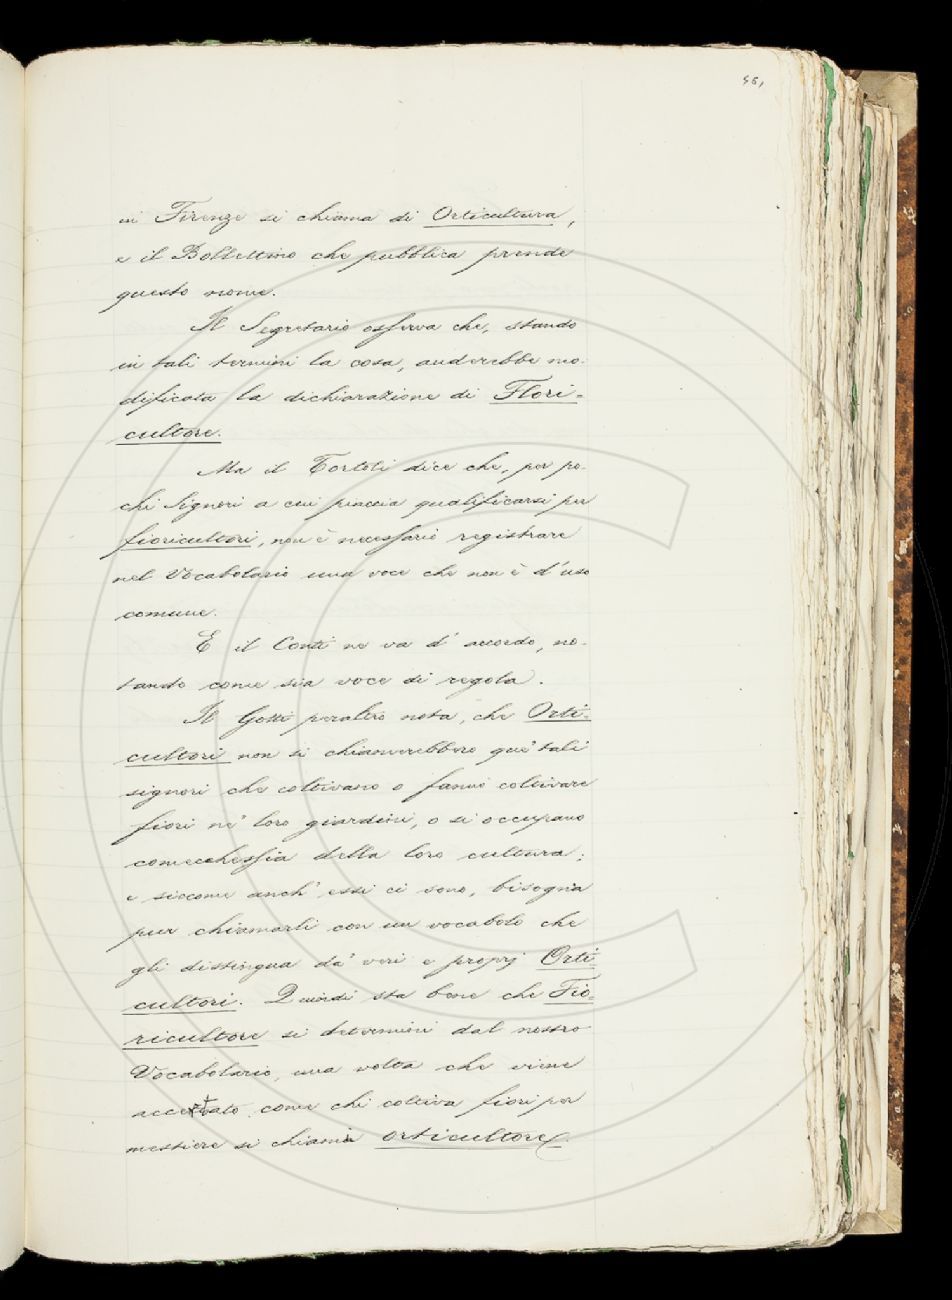 461
in Firenze si chiama di Orticultura,
e il Bollettino che pubblica prende
questo nome.
Il Segretario osserva che, stando
in tali termini la cosa, anderebbe mo-
dificata la dichiarazione di Flori-
cultore.
Ma il Tortoli dice che, per po-
chi Signori a cui piaccia qualificarsi per
fioricultori, non è necessario registrare
nel Vocabolario una voce che non è d'uso
comune.
E il Conti ne va d'accordo, no-
tando come sia voce di regola.
Il Gotti peraltro nota, che Orti-
cultori non si chiamerebbero que' tali
signori che coltivano o fanno coltivare
fiori ne' loro giardini, o si occupano
comecchessia della loro cultura;
e siccome anch'essi ci sono, bisogna
pur chiamarli con un vocabolo che
gli distingua da' veri e proprj Orti-
cultori. Quindi sta bene che Fio-
ricultore si determini dal nostro
Vocabolario, una volta che viene
accertato come chi coltiva fiori per
mestiere si chiami orticultore.